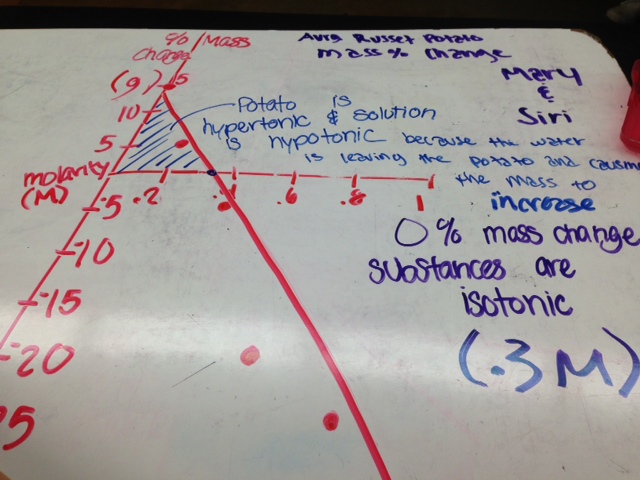 % Mass
Change
(g)
15
10
5
molarity
(M)
-5
-10
-15
-20
.2
.4
.6
.8
1
Avrg Russet Potato
mass % change
Mary
&
Siri
Potato is
hypertonic & solution
is hypotonic because the water
is leaving the potato and causing
the mass to
increase
0% mass change
substances are
isotonic
(.3M)